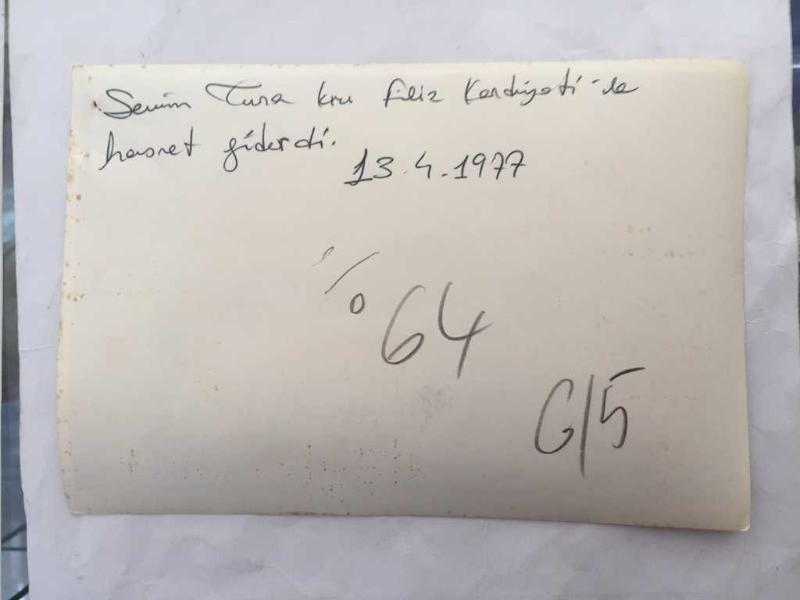 Sevim Tuna kızı Filiz Kardiyati-ile
hasret giderdi.
13.4.1977
% 64
G/5